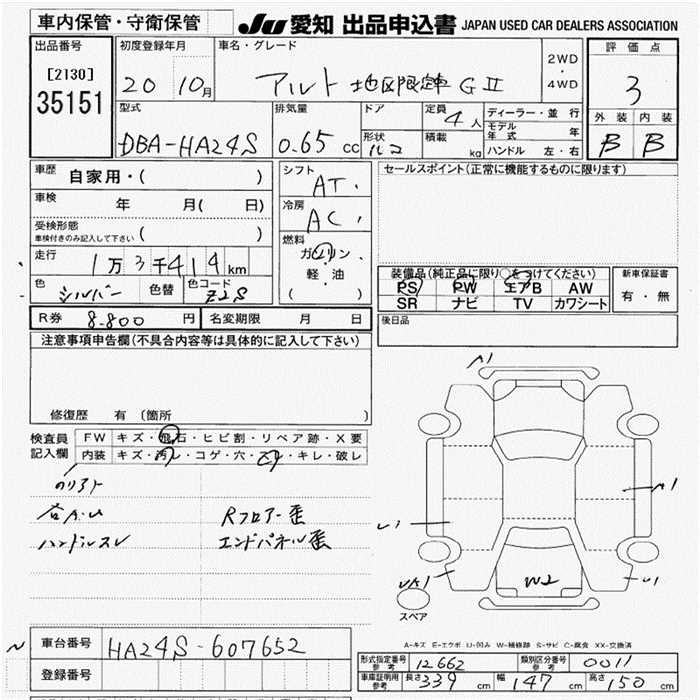 車内保管・守衛保管
JU 愛知 出品申込書 JAPAN USED CAR DEALERS ASSOCIATION
出品番号
[2130]
35151
初度登録年月
20 10月
車名・グレード
アルト 地区限定車 GⅡ
2WD
・
4WD
評価点
3
外装 内装
B B
型式
DBA-HA24S
排気量
0.65 cc
ドア
形状
定員
4人
積載
kg
ディーラー・並行
モデル年式 年
ハンドル 左・右
車歴
自家用・( )
車検
年 月( 日)
受検形態
車検付きのみ記入して下さい ( )
走行
1万3千414km
色
シルバー
色替
色コード
Z2S
シフト
AT
冷房
AC
燃料
ガソリン
・
軽・油
( )
セールスポイント(正常に機能するものに限ります)
装備品(純正品に限り○をつけてください)
PS PW エアB AW
SR ナビ TV カワシート
新車保証書
有・無
後日品
R券 8.800 円 名変期限 月 日
注意事項申告欄(不具合内容等は具体的に記入して下さい)
修復歴 有 (箇所 )
検査員記入欄
FW キズ・飛石・ヒビ割・リペア跡・X要
内装 キズ・汚レ・コゲ・穴・スレ・キレ・破レ
ハンドルスレ
Rフロアー歪
エンドパネル歪
A1
A1
U1
W2
U1
スペア
A-キズ E-エクボ U-凹み W-補修跡 S-サビ C-腐食 XX-交換済
車台番号 HA24S-607652
登録番号
型式指定番号 参考 12662
類別区分番号 参考 0011
車庫証明用 参考 長さ 339 cm 幅 147 cm 高さ 150 cm